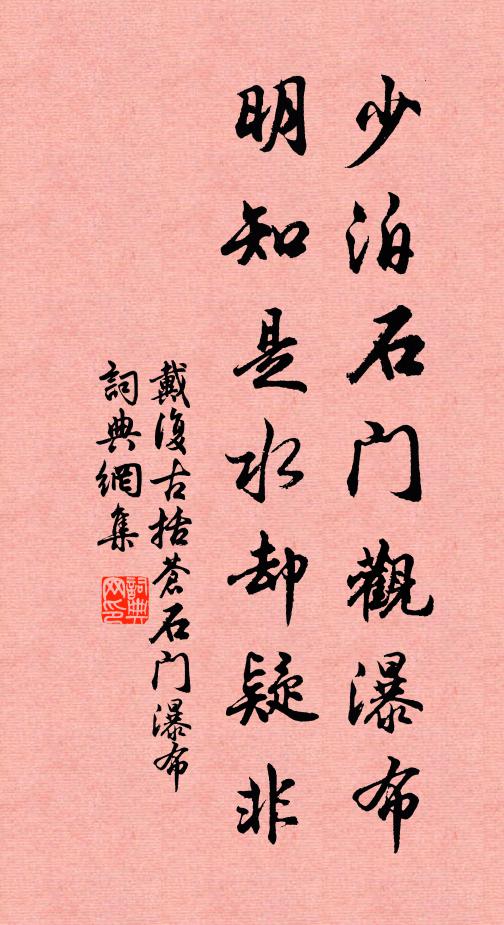 少泊石门觀瀑布
明知是水却疑非
戴復古括蒼石门瀑布
詞典網集
詞典网印